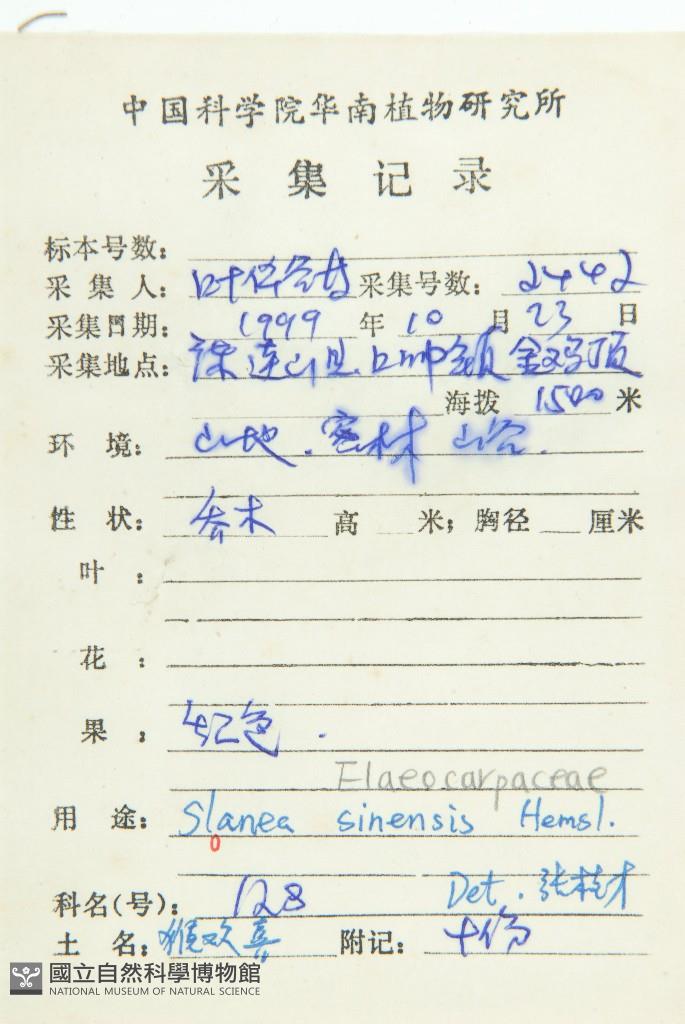 中国科学院华南植物研究所
采集记录
标本号数:
采集人: 叶华谷 采集号数: 2442
采集日期: 1999 年 10 月 23 日
采集地点: 连山县. 镇 金鸡顶
海拨 1500 米
环境: 山地. 密林 山谷.
性状: 乔木 高 米; 胸径 厘米
叶:
花:
果: 红色.
Elaeocarpaceae
用途: Slanea sinensis Hemsl.
o
科名(号): 128 Det. 张桂才
土名: 猴欢喜 附记: 十份
國立自然科學博物館
NATIONAL MUSEUM OF NATURAL SCIENCE